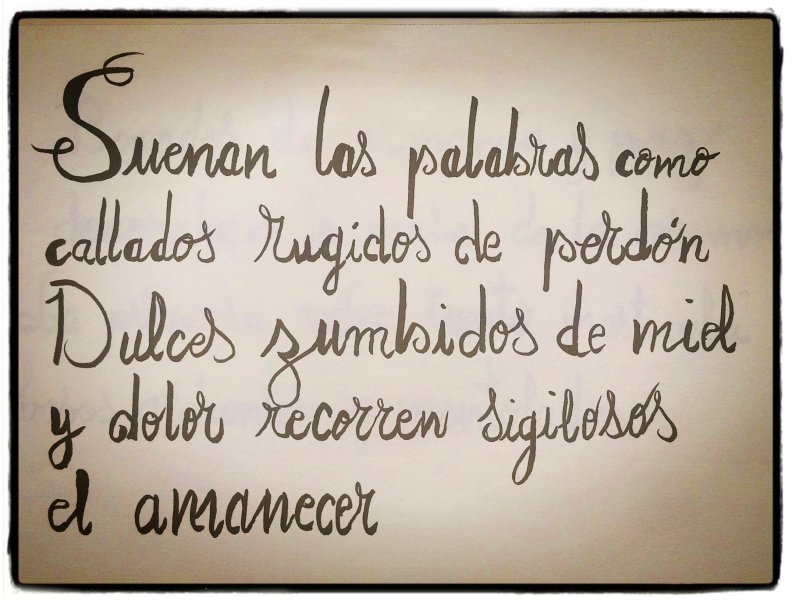 Suenan las palabras como
callados rugidos de perdón
Dulces zumbidos de miel
y dolor recorren sigilosos
el amanecer